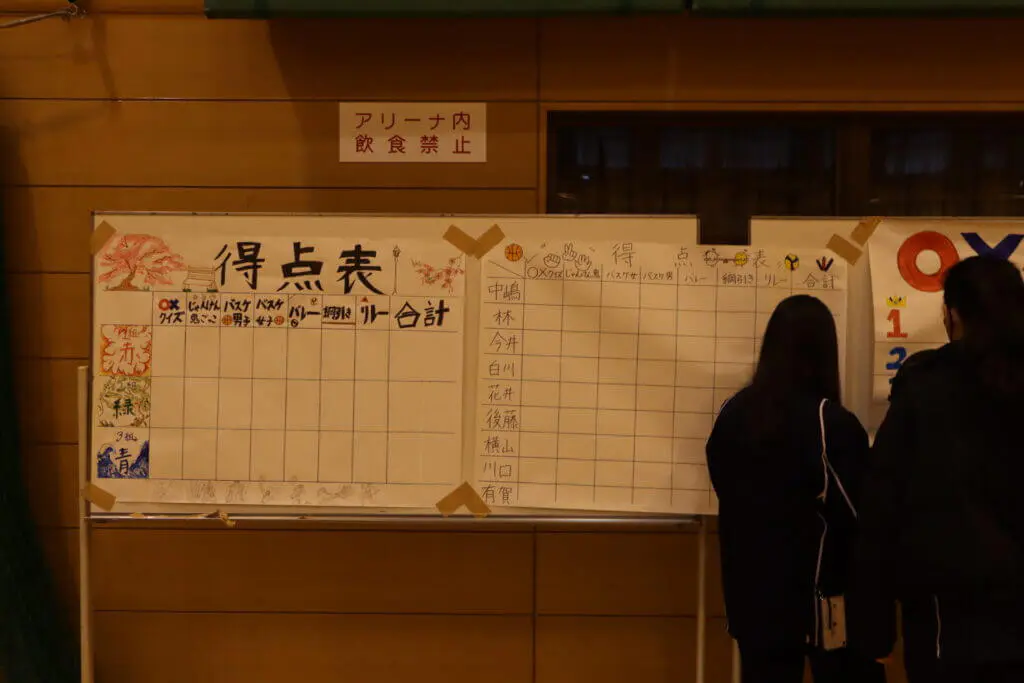 アリーナ内
飲食禁止
得点表
○×クイズ
じゃんけん鬼ごっこ
バスケ男子
バスケ女子
バレー
綱引き
リレー
合計
赤
緑
3組
青
得点表
○×クイズ
じゃんけん鬼
バスケ女
バスケ男
バレー
綱引き
リレー
合計
中嶋
林
今井
白川
花井
後藤
横山
川口
有賀
○×
1
2